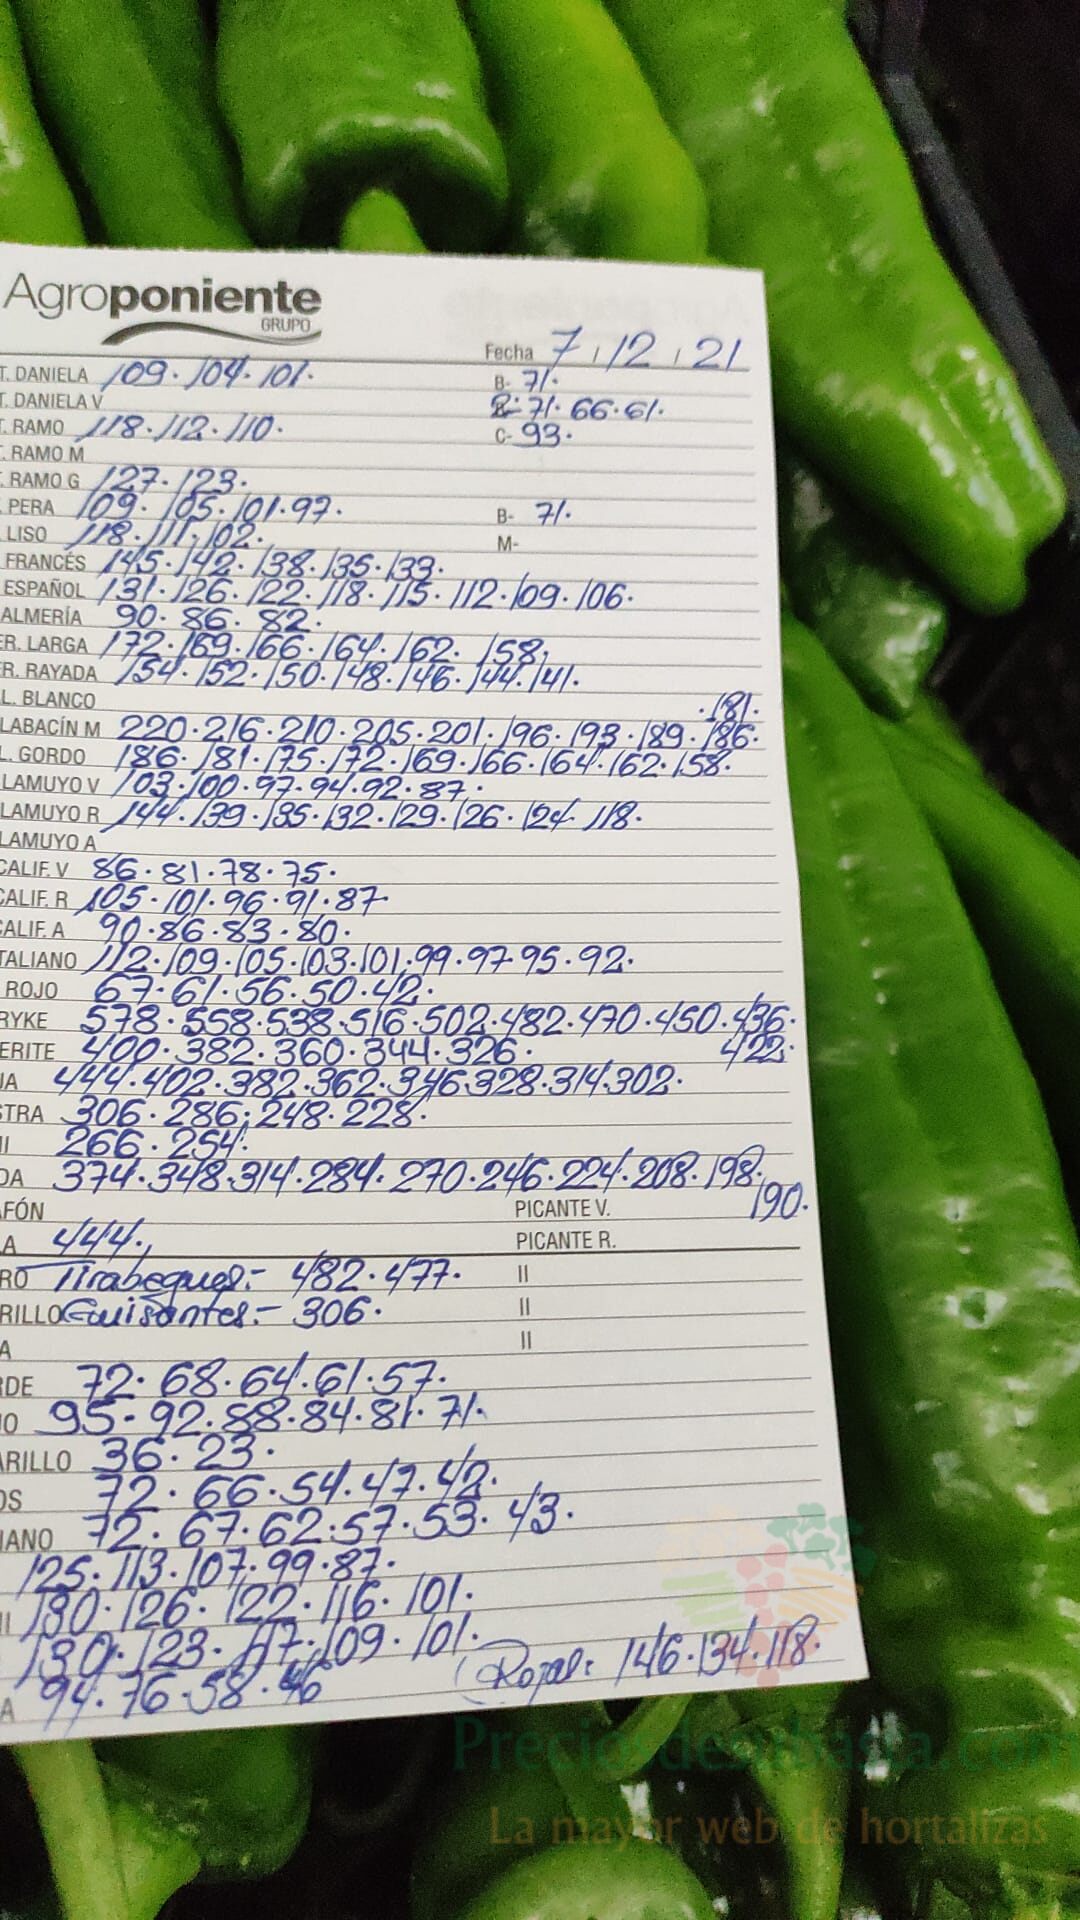 Agroponiente
GRUPO
Fecha 7/12/21
T. DANIELA 109. 104. 101. B- 71.
T. DANIELA V 71. 66. 61.
T. RAMO 118. 112. 110. C- 93.
. RAMO M
T. RAMO G 127. 123.
. PERA 109. 105. 101. 97. B- 71.
LISO 118. 111. 102. M-
FRANCÉS 145. 142. 138. 135. 133.
ESPAÑOL 131. 126. 122. 118. 115. 112. 109. 106.
ALMERÍA 90. 86. 82.
ER. LARGA 172. 169. 166. 164. 162. 158.
R. RAYADA 154. 152. 150. 148. 146. 144. 141.
L. BLANCO .181.
LABACÍN M 220. 216. 210. 205. 201. 196. 193. 189. 186.
L. GORDO 186. 181. 175. 172. 169. 166. 164. 162. 158.
LAMUYO V 103. 100. 97. 94. 92. 87.
LAMUYO R 144. 139. 135. 132. 129. 126. 124. 118.
LAMUYO A
CALIF. V 86. 81. 78. 75.
CALIF. R 105. 101. 96. 91. 87.
CALIF. A 90. 86. 83. 80.
TALIANO 112. 109. 105. 103. 101. 99. 97. 95. 92.
ROJO 67. 61. 56. 50. 42.
RYKE 578. 558. 538. 516. 502. 482. 470. 450. 436.
ERITE 400. 382. 360. 344. 326. 422.
JA 444. 402. 382. 362. 346. 328. 314. 302.
STRA 306. 286. 248. 228.
II 266. 254.
DA 374. 348. 314. 284. 270. 246. 224. 208. 198.
AFÓN PICANTE V. 190.
A 444. PICANTE R.
RO Tirabeques.- 482. 477. II
RILLO Guisantes.- 306. II
A II
RDE 72. 68. 64. 61. 57.
O 95. 92. 88. 84. 81. 71.
ARILLO 36. 23.
OS 72. 66. 54. 47. 42.
IANO 72. 67. 62. 57. 53. 43.
125. 113. 107. 99. 87.
II 130. 126. 122. 116. 101.
130. 123. 117. 109. 101.
A 94. 76. 58. 46 (Rojal: 146. 134. 118.
Preciosdesubasta.com
La mayor web de hortalizas